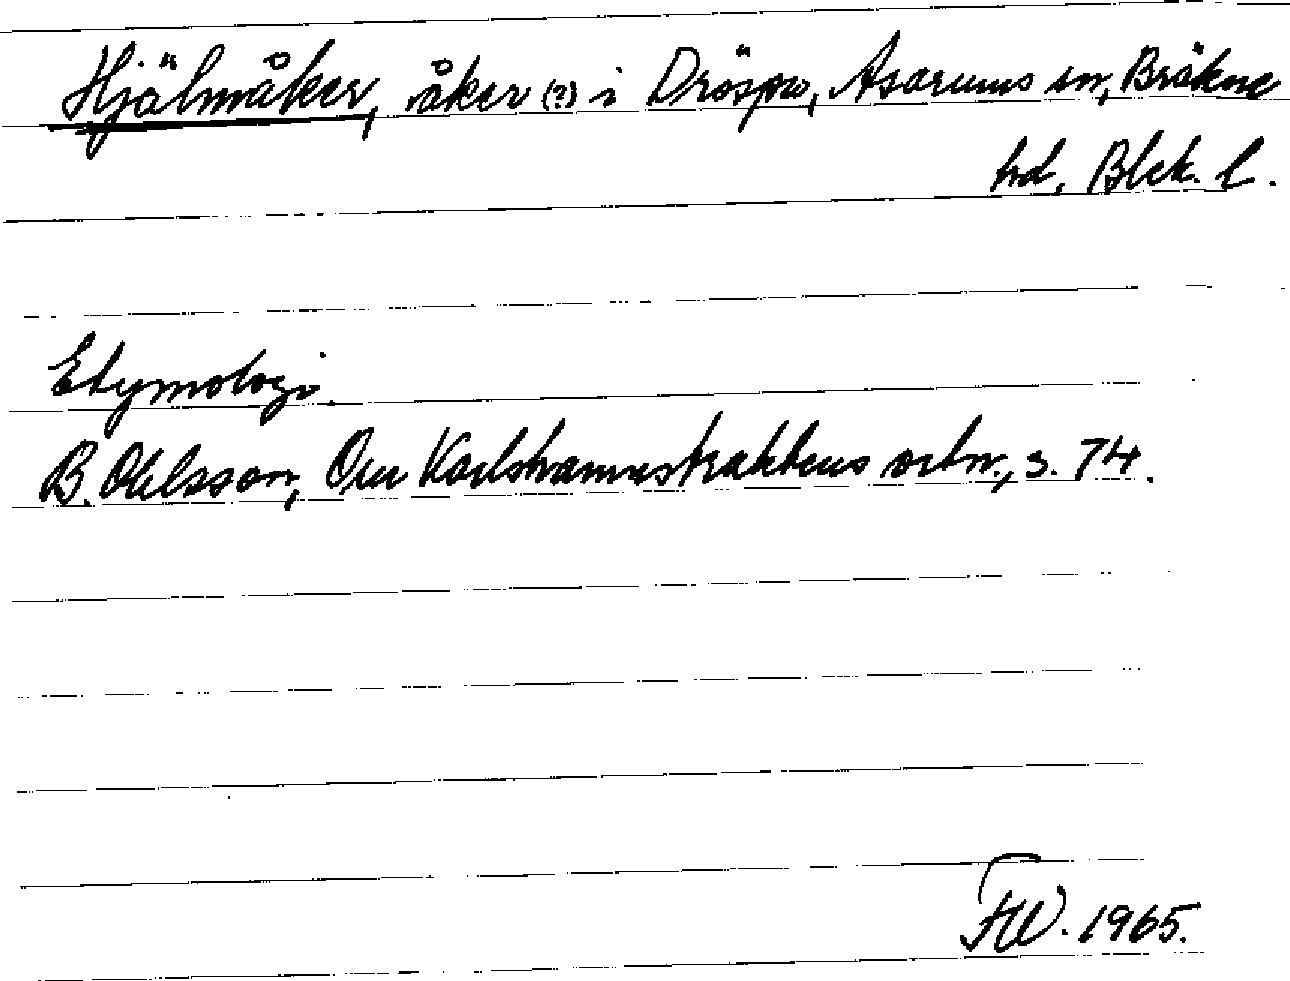 Hjälmåker, åker (?) i Dröspo, Asarums sn, Bräkne
hd, Blek. l.
Etymologi.
B. Ohlsson, Om Karlshamnstraktens ortn., s. 74.
FW. 1965.